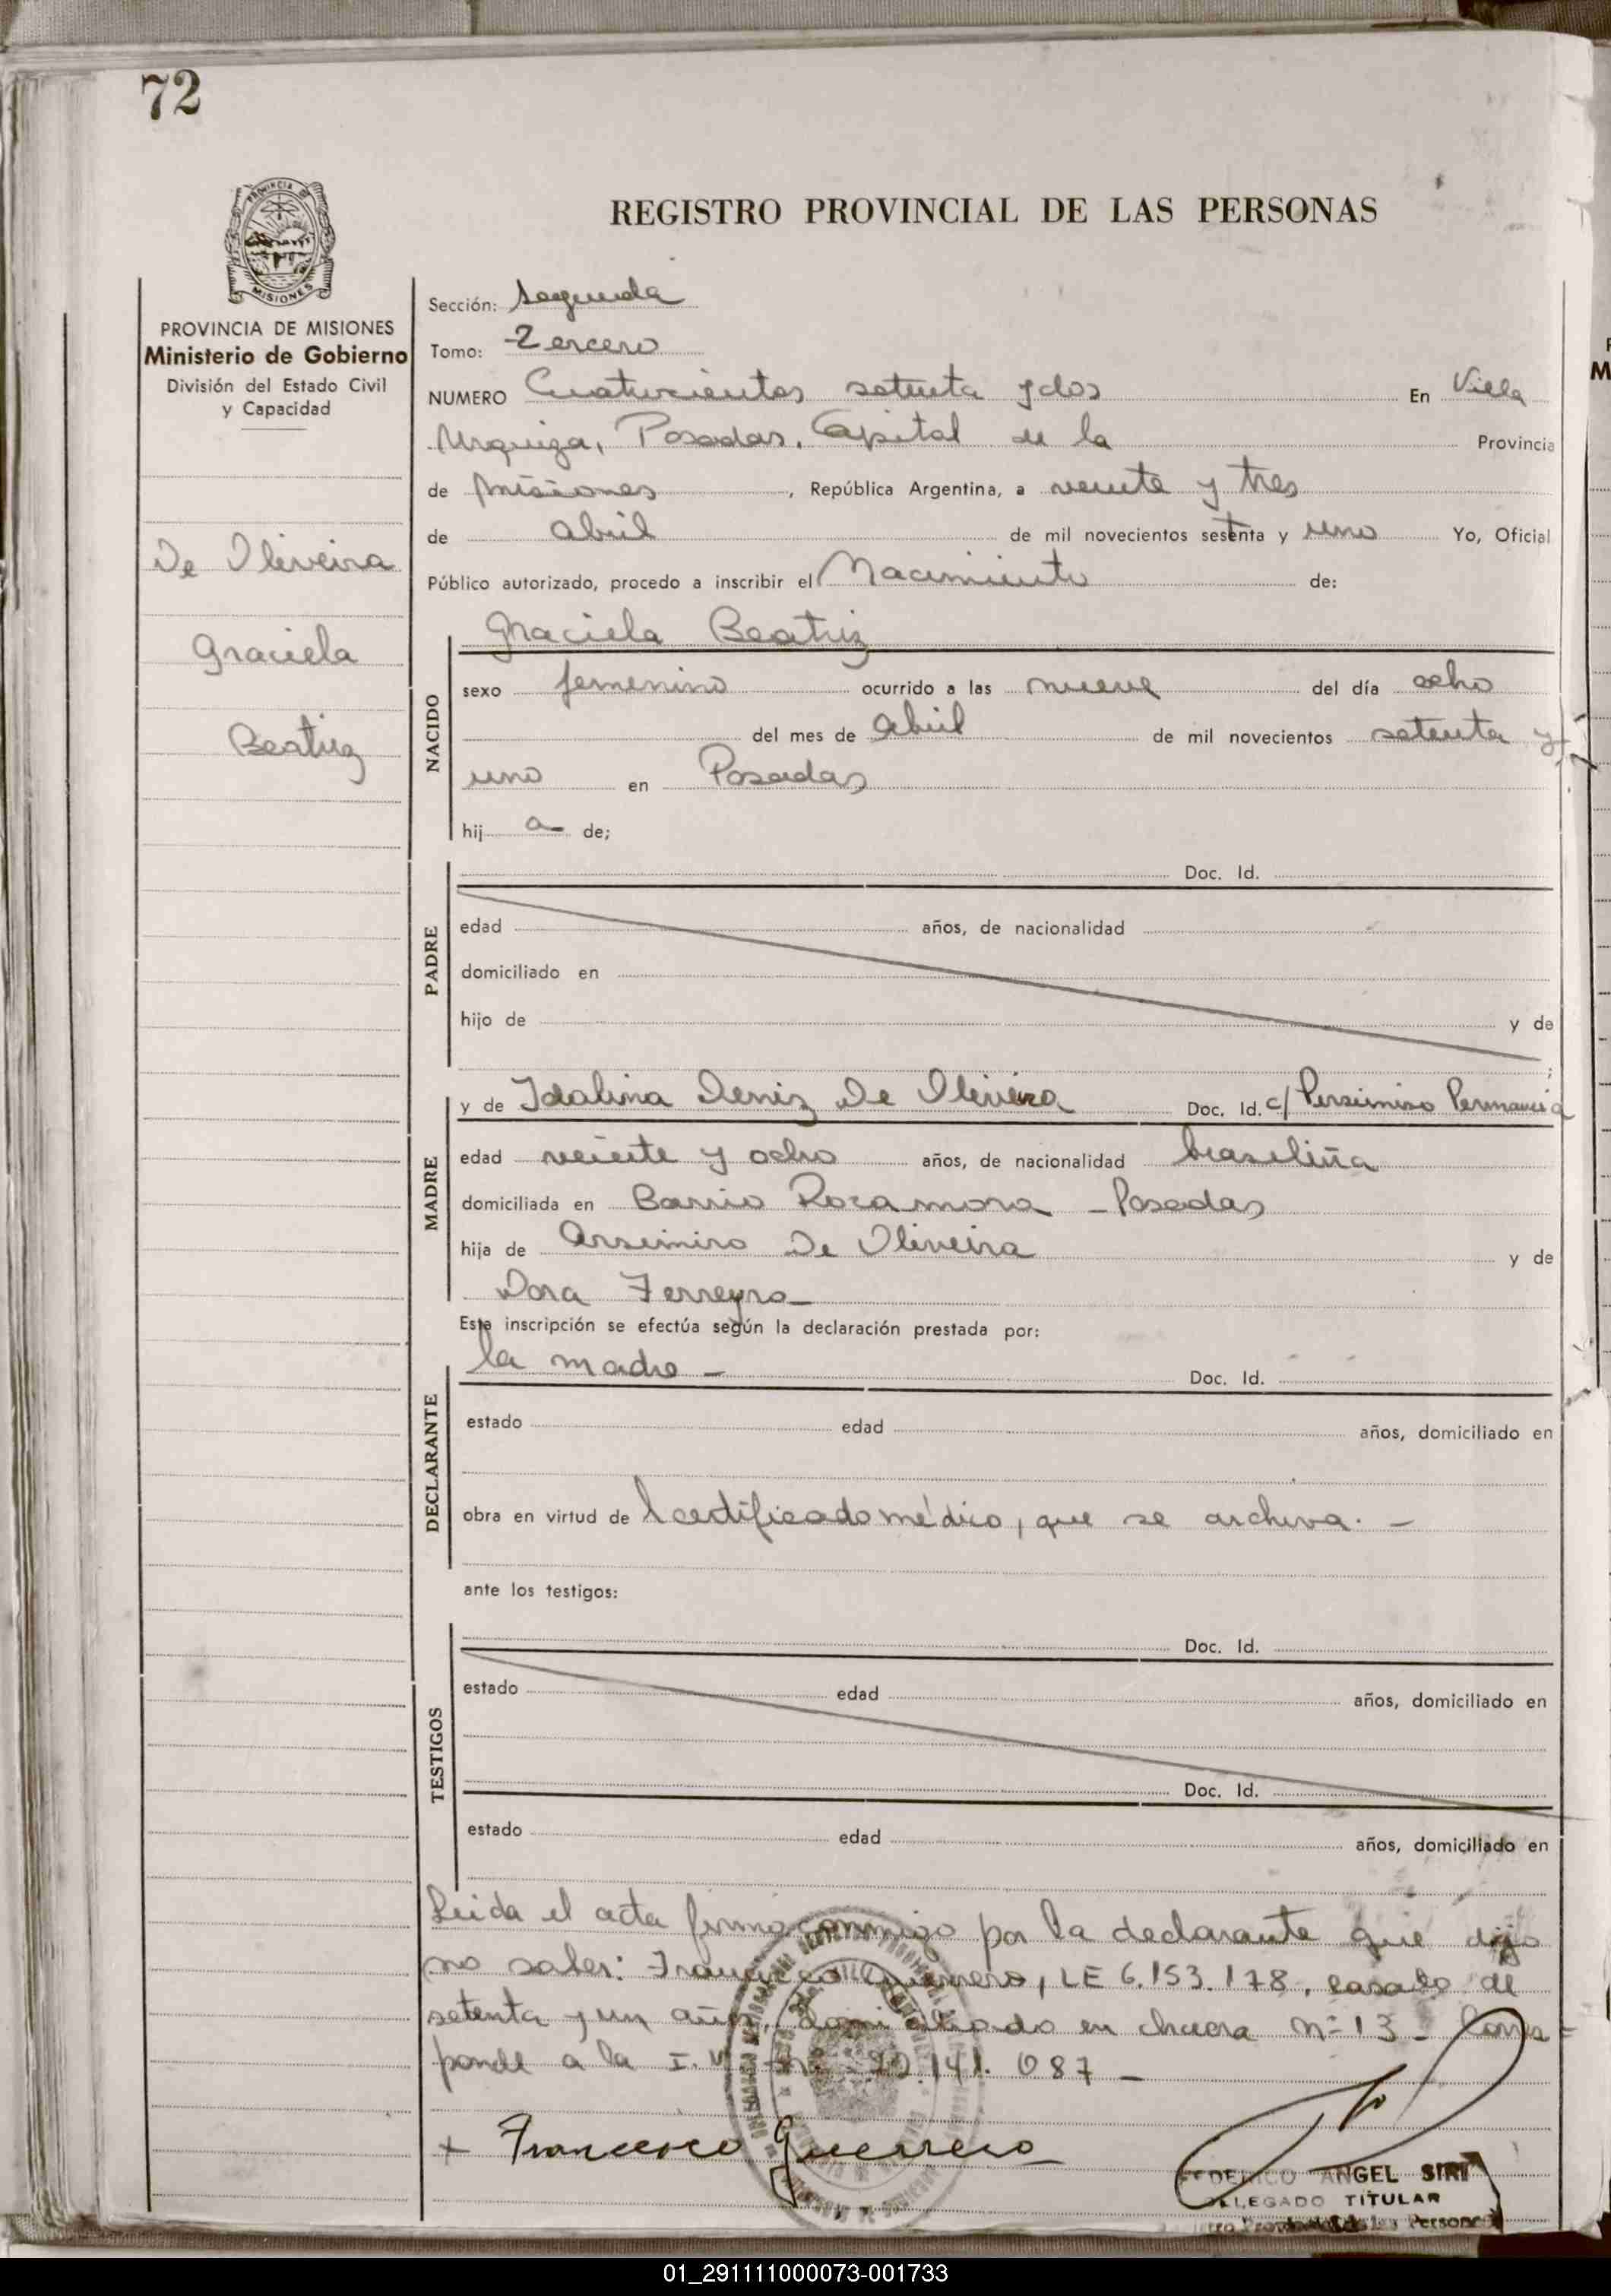 72
REGISTRO PROVINCIAL DE LAS PERSONAS
PROVINCIA DE MISIONES
Ministerio de Gobierno
División del Estado Civil
y Capacidad
De Oliveira
Graciela
Beatriz
Sección: Segunda
Tomo: Tercero
NUMERO Cuatrocientos setenta y dos En Villa
Urquiza, Posadas, Capital de la Provincia
de Misiones, República Argentina, a veinte y tres
de abril de mil novecientos setenta y uno Yo, Oficial
Público autorizado, procedo a inscribir el Nacimiento de:
Graciela Beatriz
NACIDO
sexo femenino ocurrido a las nueve del día ocho
del mes de abril de mil novecientos setenta y
uno en Posadas
hij a de;
PADRE
Doc. Id.
edad años, de nacionalidad
domiciliado en
hijo de y de
;
MADRE
y de Idalina Deniz De Oliveira Doc. Id. c/ Permiso Permancia
edad veinte y ocho años, de nacionalidad brasileña
domiciliada en Barrio Rocamora - Posadas
hija de Arsimiro De Oliveira y de
Dora Ferreyra
Esta inscripción se efectúa según la declaración prestada por:
DECLARANTE
la madre - Doc. Id.
estado edad años, domiciliado en
obra en virtud de certificado médico, que se archiva. -
ante los testigos:
TESTIGOS
Doc. Id.
estado edad años, domiciliado en
Doc. Id.
estado edad años, domiciliado en
Leida el acta firma conmigo por la declarante que dijo
no saber: Francisco Guerrero, LE 6.153.178, casado de
setenta y un años, domiciliado en chacra Nº 13 - Corres=
ponde a la 141.087 -
+ Francesco Guerrero
FEDERICO ANGEL SIRI
DELEGADO TITULAR
01_291111000073-001733